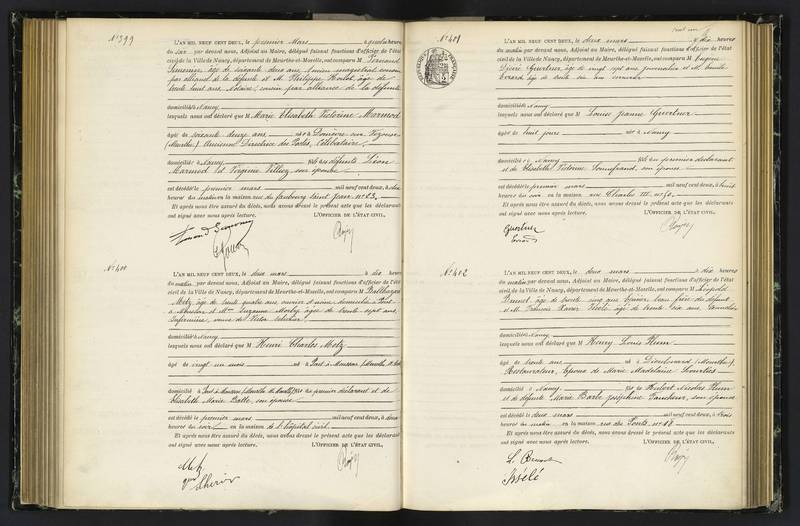 N° 399
L'AN MIL NEUF CENT DEUX, le premier Mars, à quatre heures
du soir par devant nous, Adjoint au Maire, délégué faisant fonctions d'officier de l'état
civil de la Ville de Nancy, département de Meurthe-et-Moselle, ont comparu M Fernand
âgé de soixante deux ans, ancien magistrat, cousin
par alliance de la défunte et M. Philippe Houot, âgé de
trente huit ans, Notaire, cousin par alliance de la défunte
domiciliés à Nancy
lesquels nous ont déclaré que M Marie Elisabeth Victorine Marmod
âgée de soixante douze ans née à Domèvre sur Vezouse
(Meurthe) Ancienne Directrice des Postes, Célibataire,
domiciliée à Nancy fille des défunts Léon
Marmod et Virginie son épouse
est décédée le premier mars mil neuf cent deux, à dix
heures du matin en la maison rue du faubourg Saint Jean n° 23,
Et après nous être assuré du décès, nous avons dressé le présent acte que les déclarants
ont signé avec nous après lecture. L'OFFICIER DE L'ÉTAT CIVIL,
N° 400
L'AN MIL NEUF CENT DEUX, le deux mars à dix heures
du matin par devant nous, Adjoint au Maire, délégué faisant fonctions d'officier de l'état
civil de la Ville de Nancy, département de Meurthe-et-Moselle, ont comparu M Balthazar
Metz, âgé de trente quatre ans, ouvrier d'usine domicilié à Pont
à Mousson et Mme Suzanne âgée de trente sept ans,
Infirmière, veuve de Victor
domiciliés à Nancy
lesquels nous ont déclaré que M Henri Charles Metz
âgé de vingt un mois né à Pont à Mousson (Meurthe et Moselle)
domicilié à Pont à Mousson (Meurthe et Moselle) fils du premier déclarant et de
Elisabeth Marie Batte, son épouse
est décédé le premier mars mil neuf cent deux, à deux
heures du soir en la maison de l'hôpital civil.
Et après nous être assuré du décès, nous avons dressé le présent acte que les déclarants
ont signé avec nous après lecture. L'OFFICIER DE L'ÉTAT CIVIL,
Metz
N° 401
L'AN MIL NEUF CENT DEUX, le deux mars à dix heures
du matin par devant nous, Adjoint au Maire, délégué faisant fonctions d'officier de l'état
civil de la Ville de Nancy, département de Meurthe-et-Moselle, ont comparu M Eugène
Désiré Guertner, âgé de vingt sept ans, journalier et M. Camille
âgé de trente six ans
domiciliés à Nancy
lesquels nous ont déclaré que M Louise Jeanne Guertner
âgée de huit jours née à Nancy
domiciliée à Nancy fille du premier déclarant
et de Elisabeth Victorine son épouse
est décédée le premier mars mil neuf cent deux, à huit
heures du soir en la maison rue Charles III, n° 70.
Et après nous être assuré du décès, nous avons dressé le présent acte que les déclarants
ont signé avec nous après lecture. L'OFFICIER DE L'ÉTAT CIVIL,
Guertner
N° 402
L'AN MIL NEUF CENT DEUX, le deux mars à dix heures
du matin par devant nous, Adjoint au Maire, délégué faisant fonctions d'officier de l'état
civil de la Ville de Nancy, département de Meurthe-et-Moselle, ont comparu M Léopold
âgé de trente cinq ans, beau frère du défunt
et M. François Xavier âgé de trente six ans,
domiciliés à Nancy
lesquels nous ont déclaré que M Henry Louis Thum
âgé de trente ans né à Dieulouard (Meurthe),
Restaurateur, époux de Marie Madelaine
domicilié à Nancy fils de Hubert Nicolas Thum
et de défunte Marie Barbe Joséphine son épouse
est décédé le deux mars mil neuf cent deux, à trois
heures du matin en la maison rue des Ponts, n° 18
Et après nous être assuré du décès, nous avons dressé le présent acte que les déclarants
ont signé avec nous après lecture. L'OFFICIER DE L'ÉTAT CIVIL,